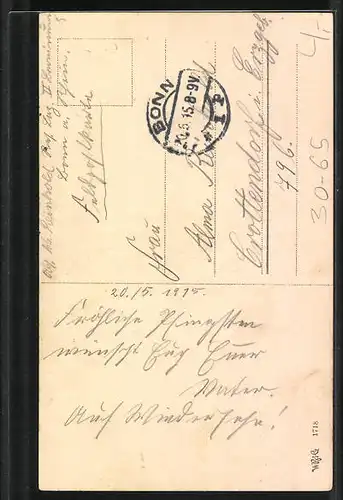 Bonn a. Rhein.
Feldpostkarte
BONN
20.5.15.8-9V.
* 1 P
Frau
Alma
Crottendorf i. Erzgeb.
796.
4,-
30-65
20./5. 1915.
Fröhliche Pfingsten
wünscht Euch Euer
Vater.
Auf Wiedersehn!
1718